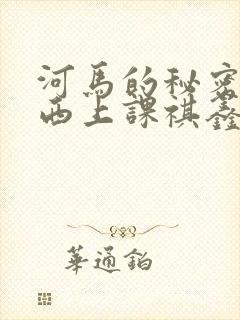 河馬的秘密
西上課祺鑫
華通鉑